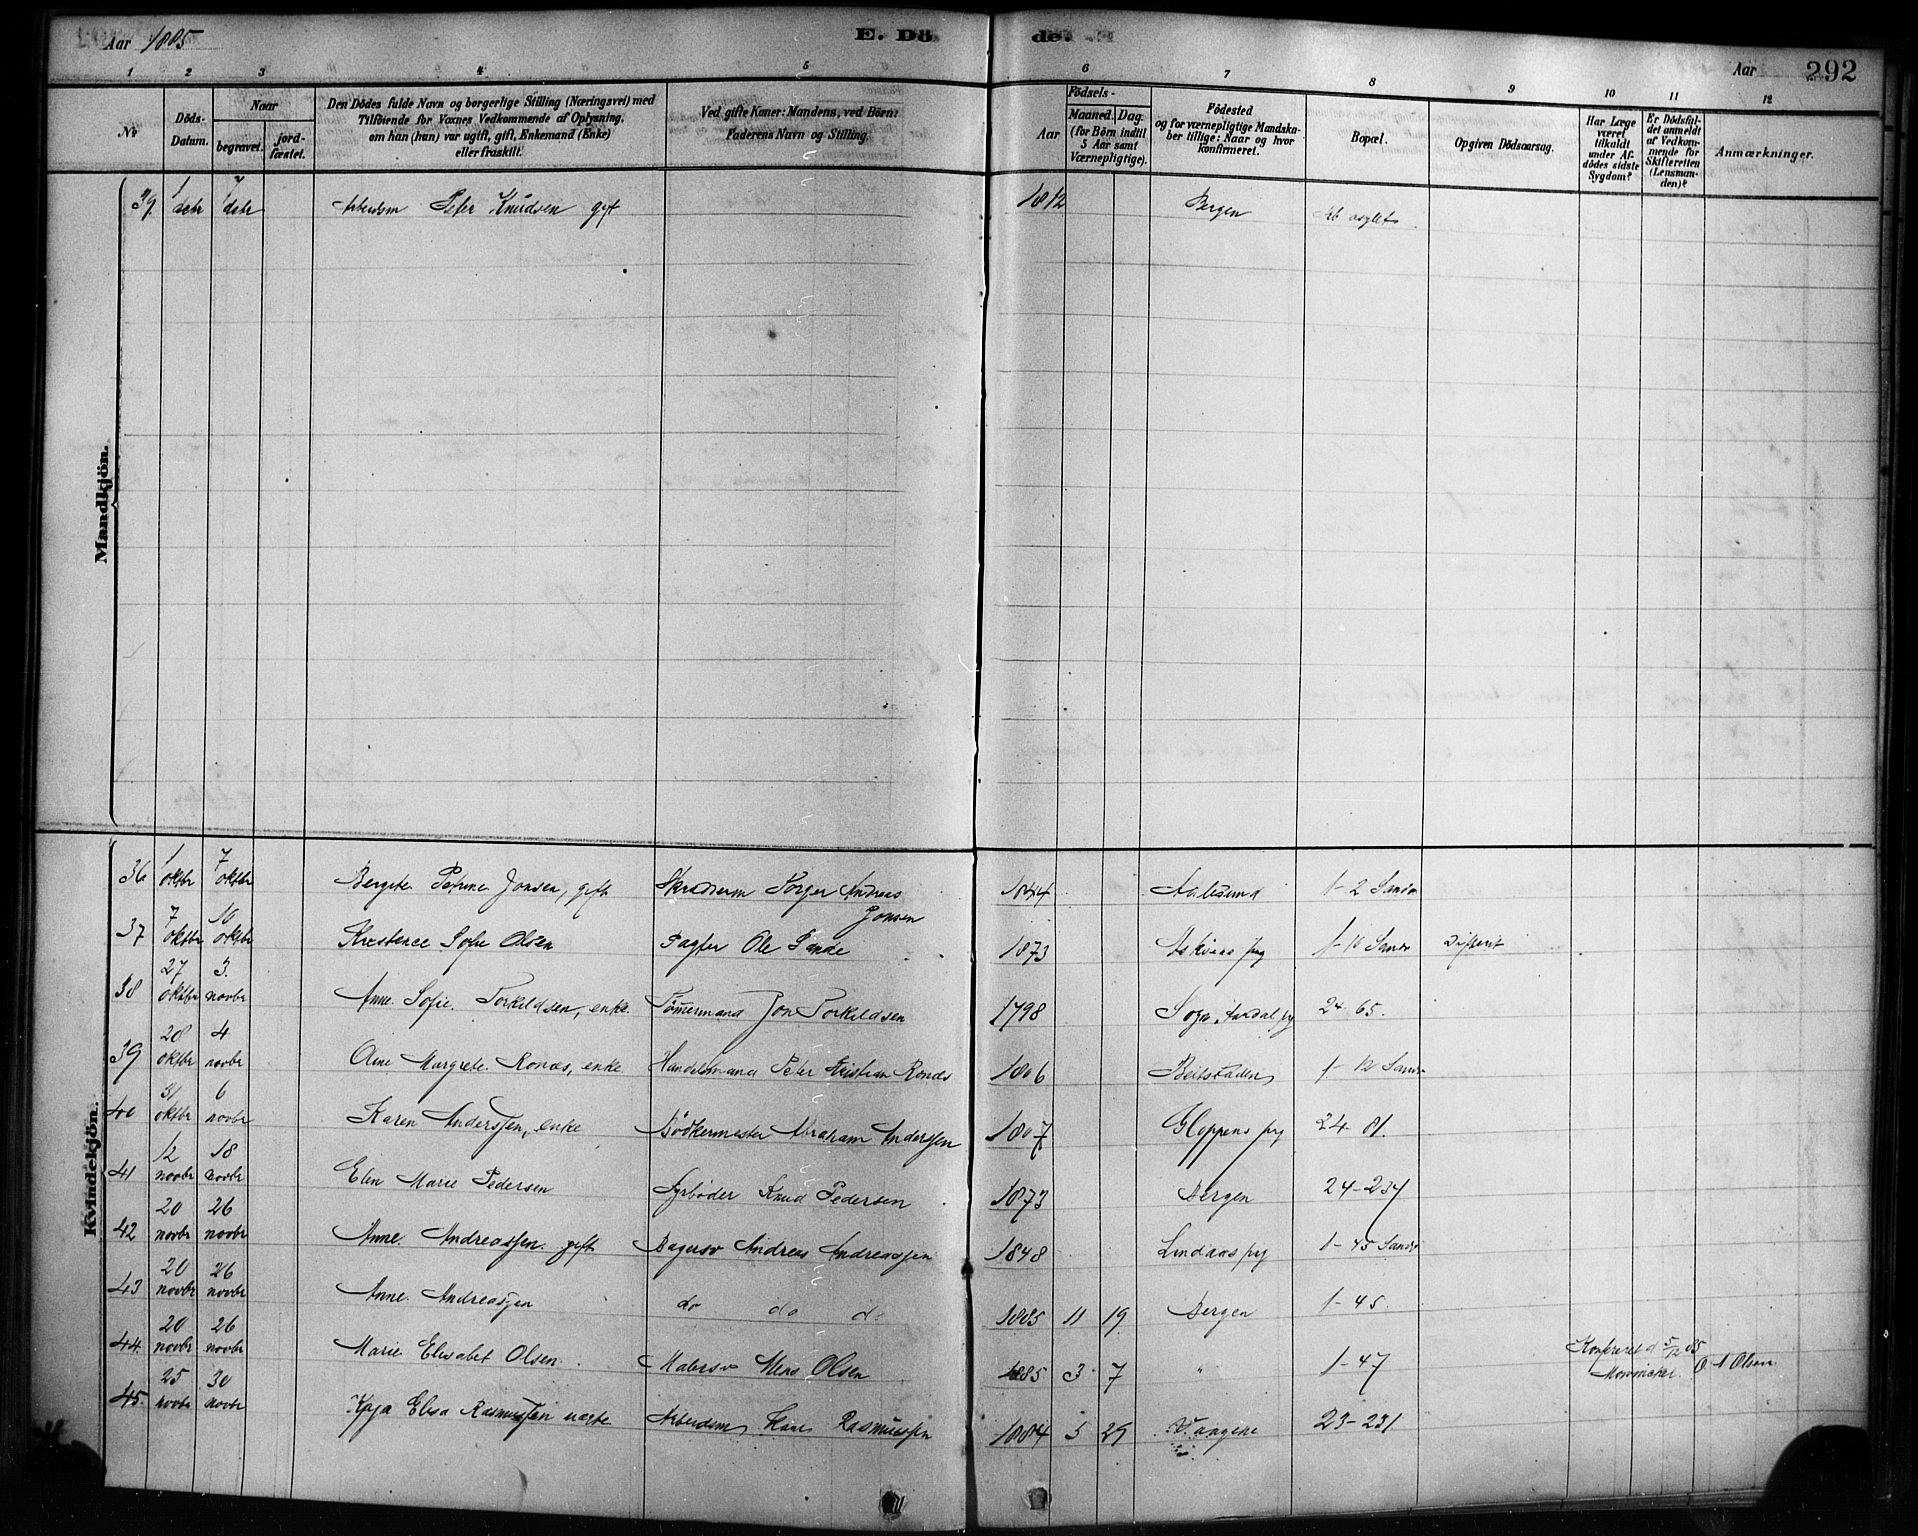 Aar 1885 E. Dö de. Aar 292
1 2 3 4 5 6 7 8 9 10 11 12
No
Döds-Datum.
Naar
begravet.
jord-fæstet.
Den Dödes fulde Navn og borgerlige Stilling (Næringsvei) med
Tilföiende for Voxnes Vedkommende af Oplysning,
om han (hun) var ugift, gift, Enkemand (Enke)
eller fraskilt.
Ved gifte Koner: Mandens, ved Börn:
Faderens Navn og Stilling.
Födsels-
Aar
Maaned. Dag.
(for Börn indtil
5 Aar samt
Værnepligtige).
Födested
og for værnepligtige Mandska-
ber tillige: Naar og hvor
konfirmeret.
Bopæl.
Opgiven Dödsaarsag.
Har Læge
været
tilkaldt
under Af-
dödes sidste
Sygdom?
Er Dödsfal-
det anmeldt
af Vedkom-
mende for
Skifteretten
(Lensman-
den)?
Anmærkninger.
Mandkjön.
39. 1 decbr 7 decbr Arbeidsm Peter Knudsen gift 1812 Bergen Arb asylet
Kvindekjön.
36 1 oktbr 7 oktbr Bergite Petrine Jonsen, gift Skræderm Torger Andreas Jonsen 1844 Aalesund 1-2 Sandv
37 7 oktbr 10 oktbr Kristence Sofie Olsen Pagter Ole Sande 1873 Askvolds pg 1-10 Sandv Difterit
38 27 oktbr 3. novbr Anne Sofie Torkildsen, enke. Tömermand Jon Torkildsen 1798 Sogn, Aardal pg 24-65.
39 28 oktbr 4 novbr Oline Margrete Ronæs, enke Handelsmand Peter Kristian Ronæs 1806 Beitstaden 1-12 Sandv
40 31 oktbr 6 novbr Karen Anderssen, enke Bödkermester Abraham Anderssen 1807 Gloppens pg 24-81.
41 12 novbr 18 novbr Elen Marie Pedersen Fyrböder Knud Pedersen 1873 Bergen 24-234
42 20 novbr 26 novbr Anne Andreassen gift Bagersv Andreas Andreassen 1848 Lindaas pg 1-45 Sandv
43 20 novbr 26 novbr Anne Andreassen do do do 1885 11 19 Bergen 1-45.
44. 20 novbr 26 novbr Marie Elisabet Olsen Malersv Mons Olsen 1885 3 7 " 1-47 Konfereret d 5/12 85 O A Olsen
45. 25 novbr 30 novbr Kaja Elisa Rasmussen uægte Arbeidsm Hans Rasmussen 1884 5 29 Vangene 23-231